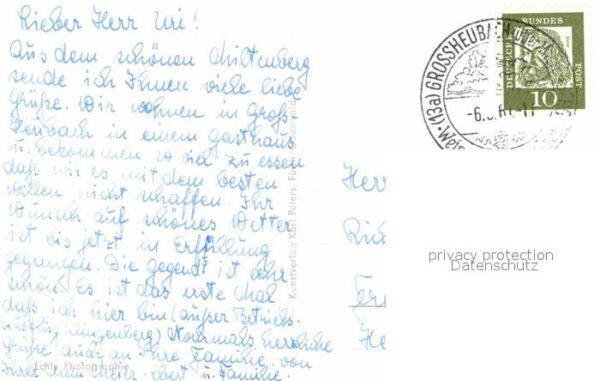 Lieber Herr Uri!
Aus dem schönen Miltenberg
sende ich Ihnen viele liebe
Grüße. Wir wohnen in Groß-
heubach in einem Gasthaus
u. bekommen so viel zu essen
daß wir es mit dem besten
Willen nicht schaffen. Ihr
Wunsch auf schönes Wetter
ist bis jetzt in Erfüllung
gegangen. Die Gegend ist sehr
schön. Es ist das erste Mal
daß ich hier bin (außer Betriebs-
ausflug Klingenberg) Nochmals herzliche
Grüße auch an Ihre Familie von
u. Familie.
Echte Photographie
Kunstverlag Karl Peters, Fürth i. Odenwald
(13a) GROSSHEUBACH
-6.
DEUTSCHE BUNDES POST
10
Herr
privacy protection
Datenschutz